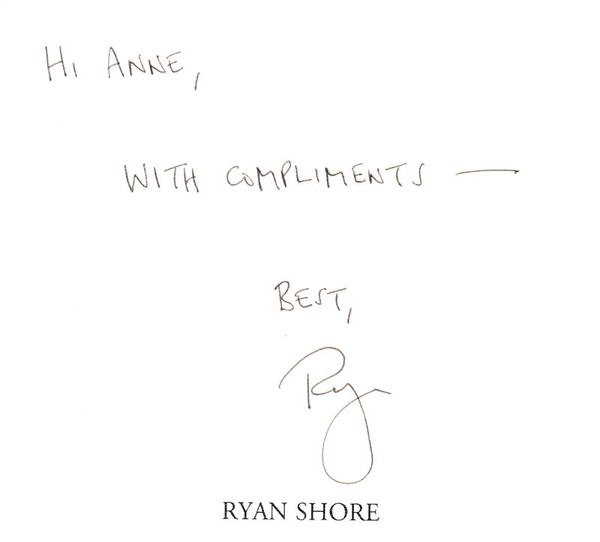 HI ANNE,
WITH COMPLIMENTS —
BEST,
Ryan
RYAN SHORE